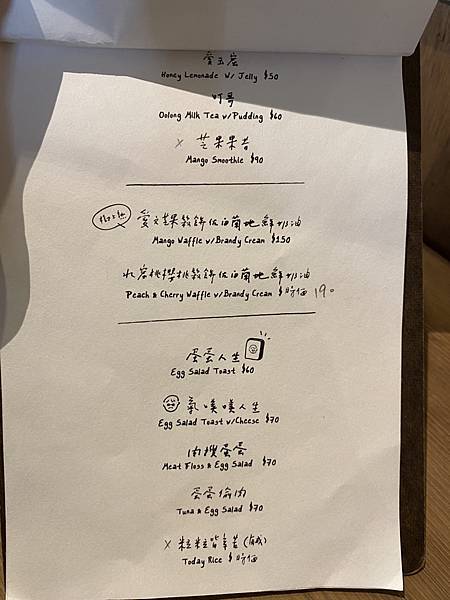 愛玉岩
Honey Lemonade w/ Jelly $50
叮哥
Oolong Milk Tea w/Pudding $60
× 芒果果昔
Mango Smoothie $90
愛文芒果鬆餅佐白蘭地鮮奶油
Mango Waffle w/Brandy Cream $150
水蜜桃櫻桃鬆餅佐白蘭地鮮奶油
Peach & Cherry Waffle w/Brandy Cream $時價 190
蛋蛋人生
Egg Salad Toast $60
氣噗噗人生
Egg Salad Toast w/Cheese $70
肉搜蛋蛋
Meat Floss & Egg Salad $70
蛋蛋偷肉
Tuna & Egg Salad $70
× 粒粒皆辛苦(鹹)
Today Rice $時價